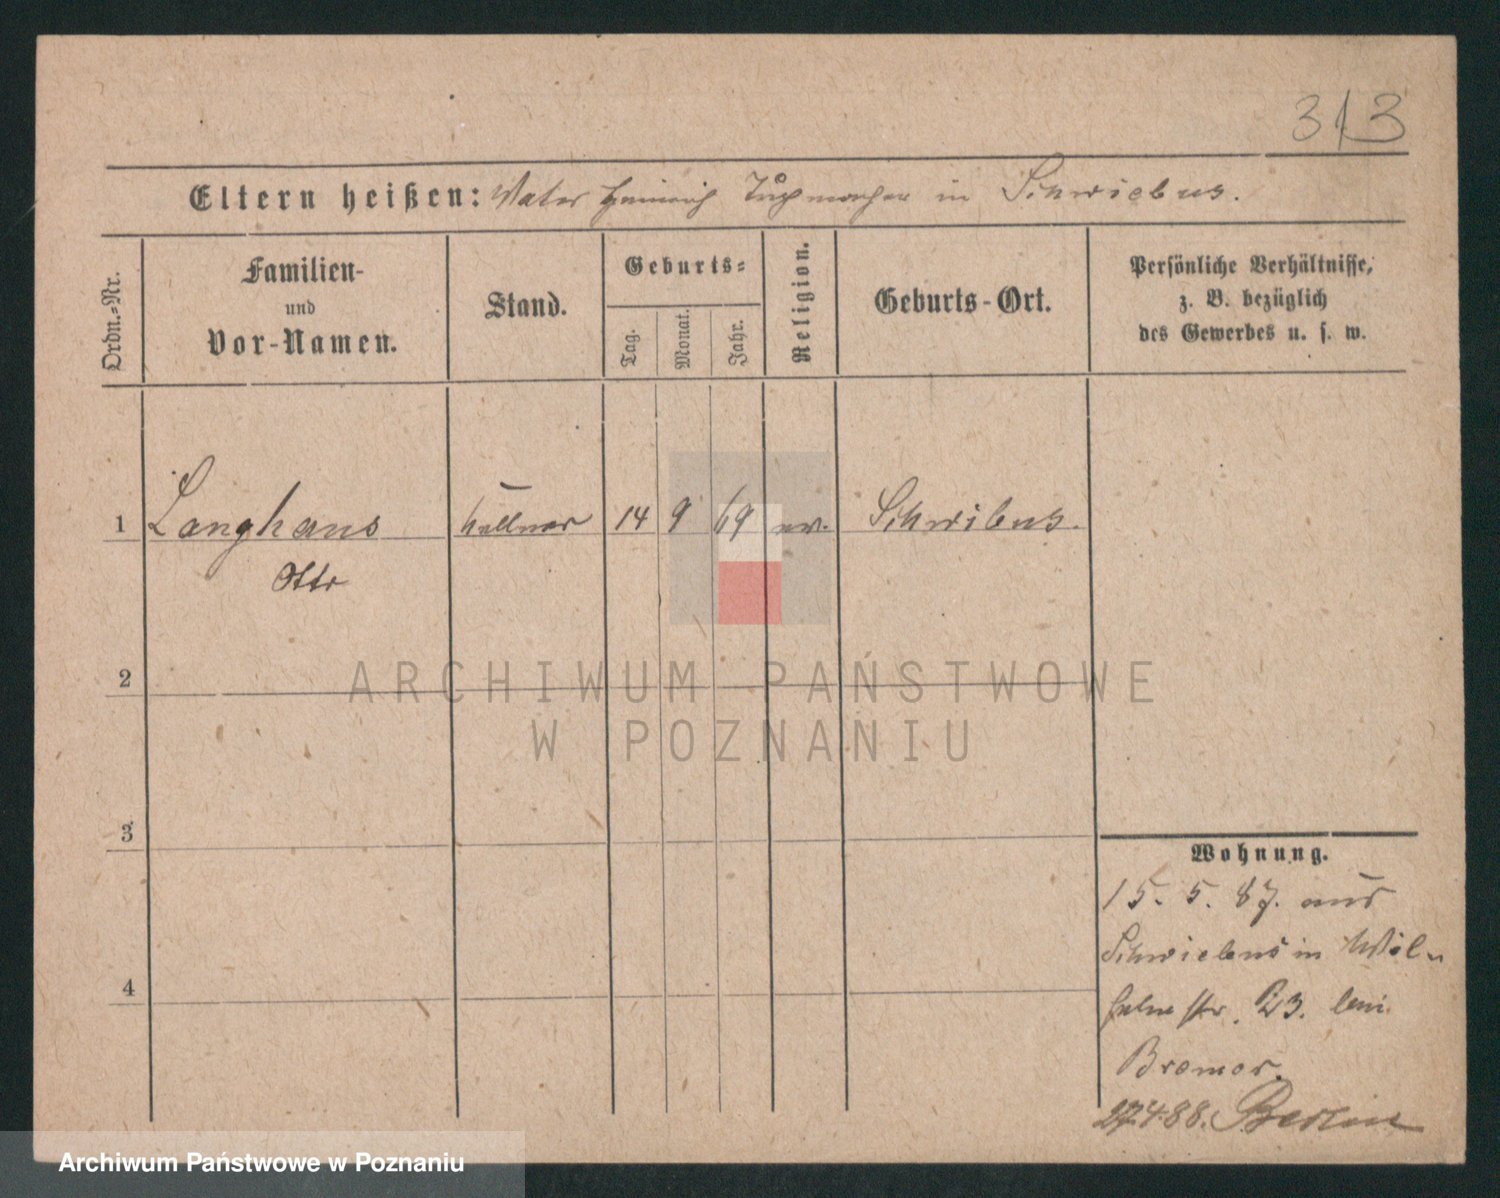 313
Eltern heißen: Vater Heinrich Tuchmacher in Schwiebus.
Ordn.-Nr.
Familien-
und
Vor-Namen.
Stand.
Geburts-
Tag.
Monat.
Jahr.
Religion.
Geburts-Ort.
Persönliche Verhältnisse,
z. B. bezüglich
des Gewerbes u. s. w.
1 Langhans Kellner 14 9 69 ev. Schwibus.
Otto
2
ARCHIWUM PAŃSTWOWE
W POZNANIU
3
Wohnung.
15. 5. 87. aus
Schwiebus in Wil-
helmstr. 23. bei
Bremer.
4
27.4.88. Berlin
Archiwum Państwowe w Poznaniu